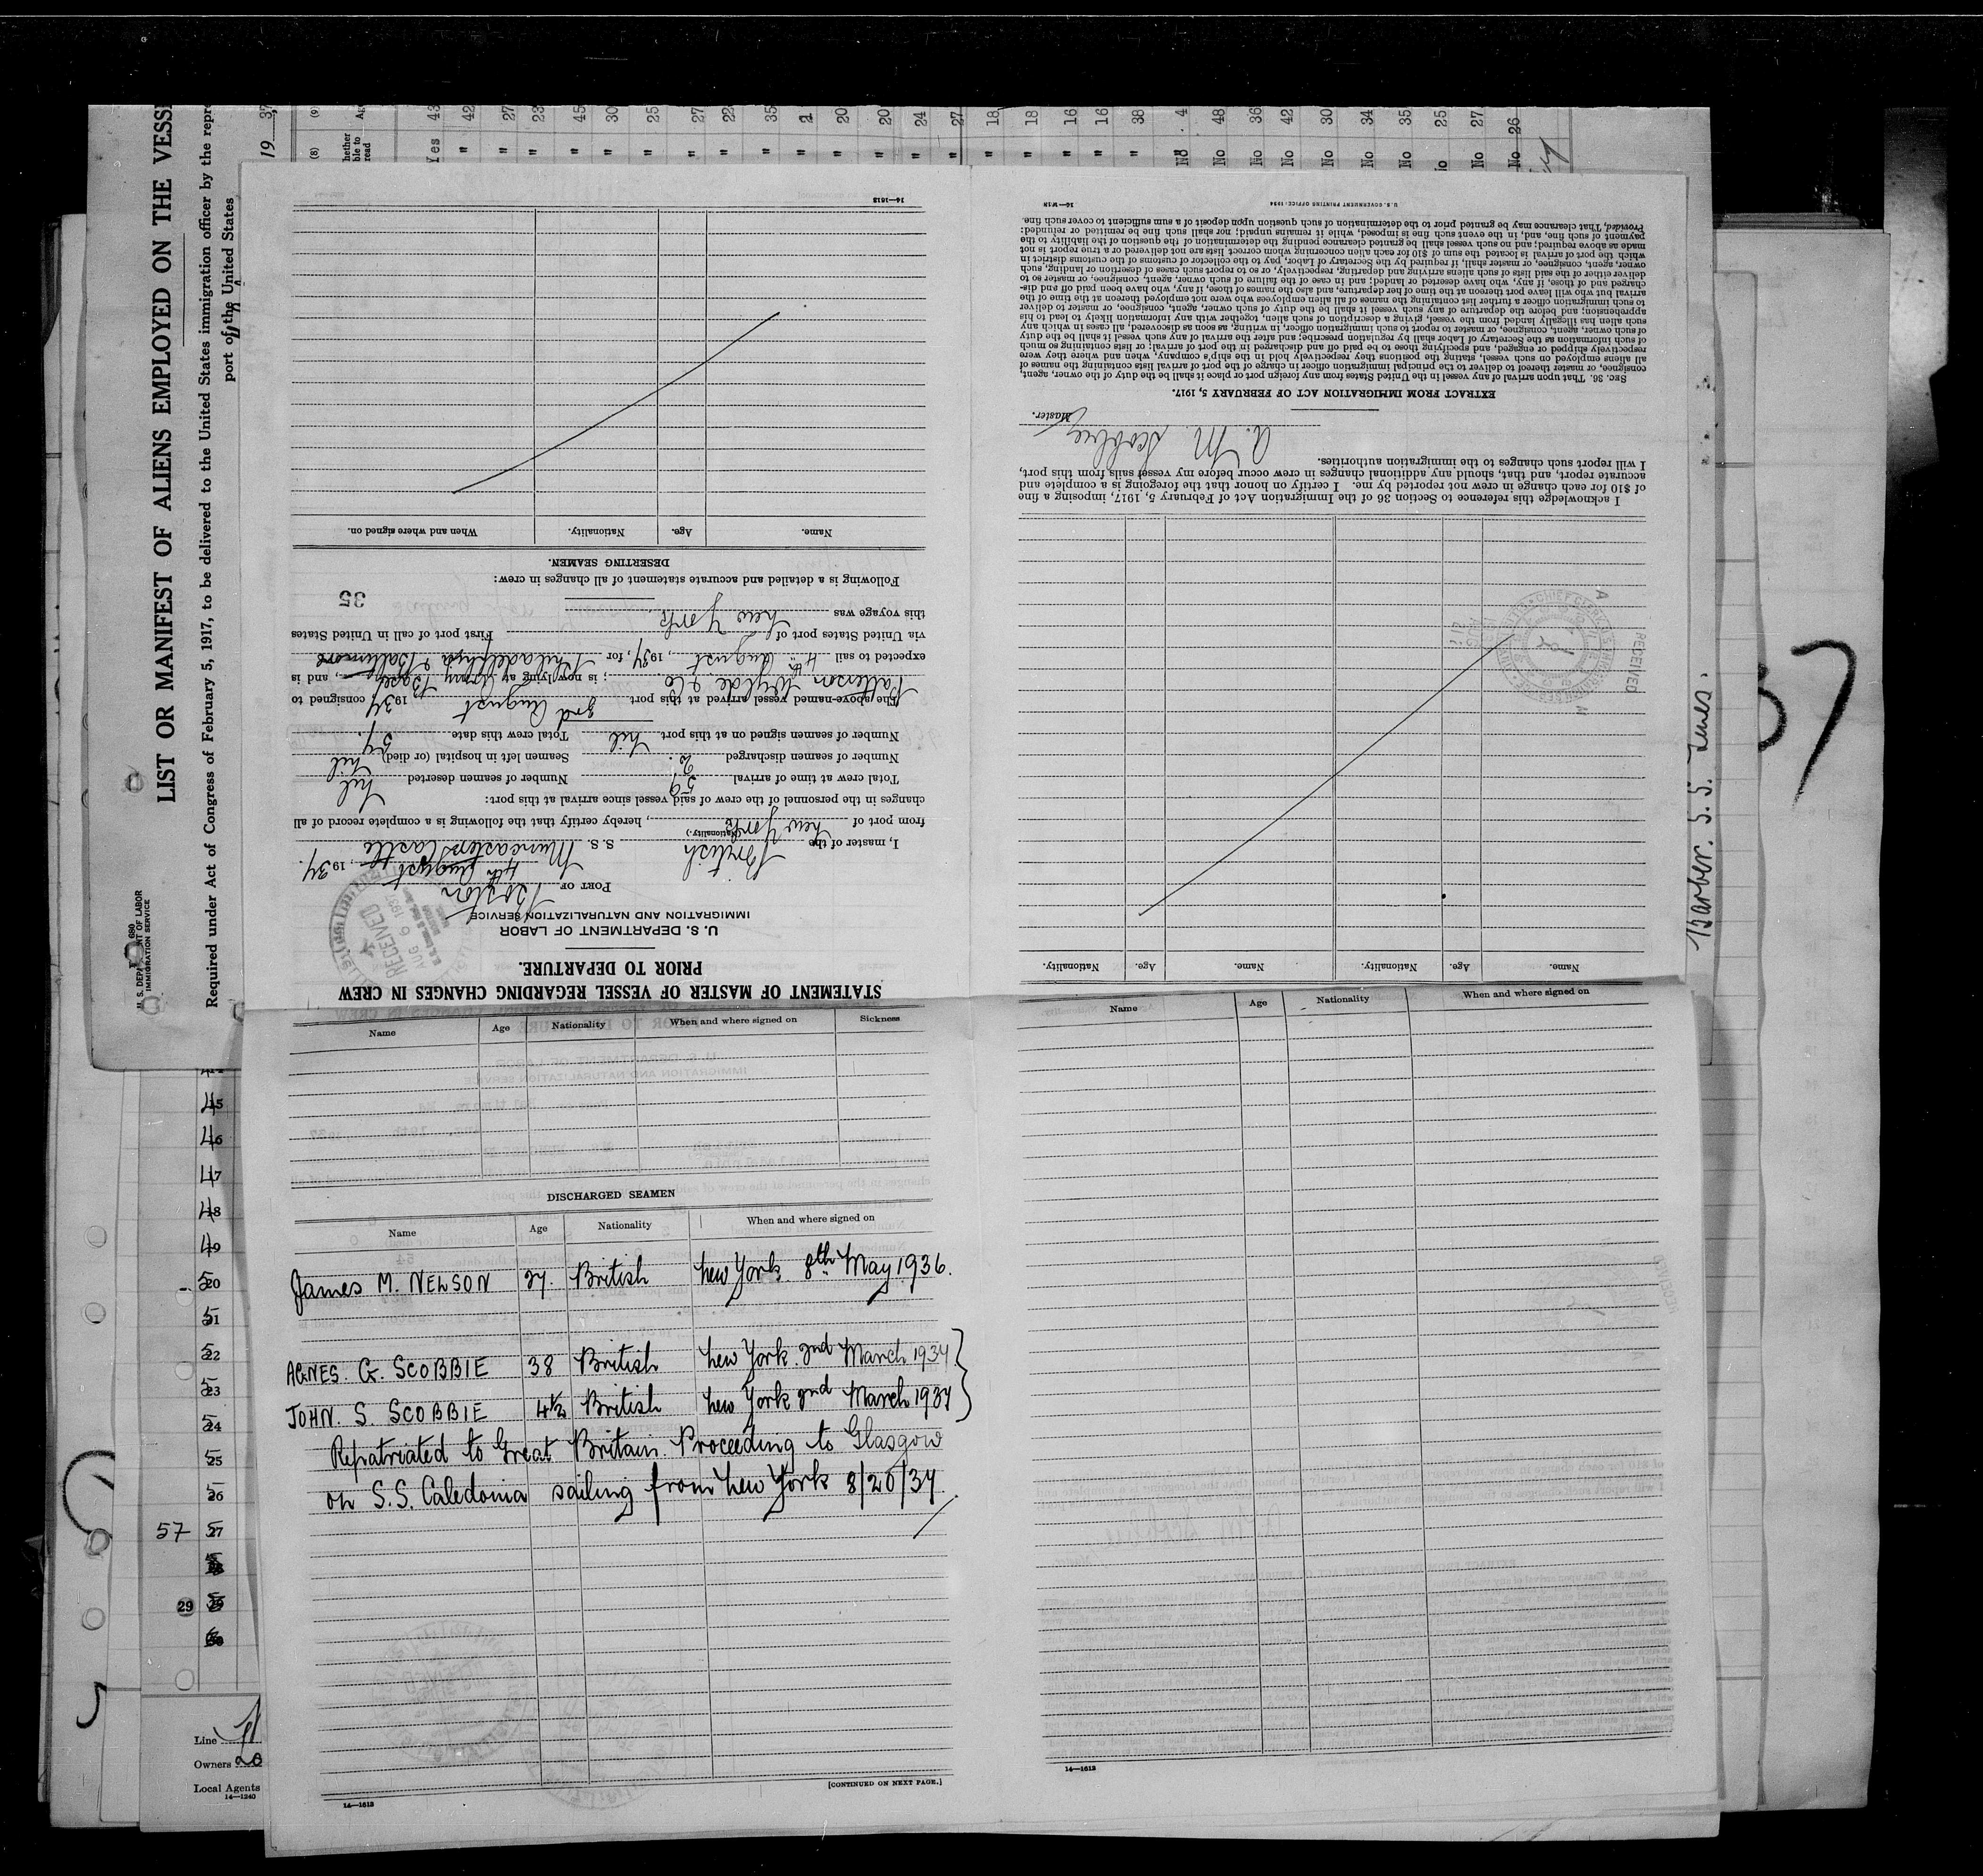 LIST OR MANIFEST OF ALIENS EMPLOYED ON THE VESSE
Required under Act of Congress of February 5, 1917, to be delivered to the United States immigration officer by the repre
port of the United States
19 37
680
U. S. DEPARTMENT OF LABOR
IMMIGRATION SERVICE
(8) (9)
hether
ble to
read
Yes 43
" 42
" 27
" 23
" 45
" 30
" 25
" 27
" 22
" 35
" 21
" 20
" 20
" 24
" 27
" 18
" 18
" 16
" 16
" 38
No 4
No 48
No 36
No 42
No 30
No 34
No 35
No 25
No 27
No 26
STATEMENT OF MASTER OF VESSEL REGARDING CHANGES IN CREW
PRIOR TO DEPARTURE.
U. S. DEPARTMENT OF LABOR
IMMIGRATION AND NATURALIZATION SERVICE
RECEIVED
AUG 6 1937
PORT OF Boston
4th August, 1937.
I, master of the British S. S. Muncaster Castle
(Nationality.)
from port of New York, hereby certify that the following is a complete record of all
changes in the personnel of the crew of said vessel since arrival at this port:
Total crew at time of arrival 59 Number of seamen deserted Nil
Number of seamen discharged 2. Seamen left in hospital (or died) Nil
Number of seamen signed on at this port Nil Total crew this date 57.
The above-named vessel arrived at this port 3rd August 1937 consigned to
Patterson Wylde & Co; is now lying at Army Base, and is
expected to sail 4th August, 1937, for Philadelphia & Baltimore
via United States port of First port of call in United States
this voyage was New York
35
Following is a detailed and accurate statement of all changes in crew:
DESERTING SEAMEN.
Name. Age. Nationality. When and where signed on.
14—1613
Name. Age. Nationality. Name. Age. Nationality.
RECEIVED
CHIEF CLERK'S
I acknowledge this reference to Section 36 of the Immigration Act of February 5, 1917, imposing a fine
of $10 for each change in crew not reported by me. I certify on honor that the foregoing is a complete and
accurate report, and that, should any additional changes in crew occur before my vessel sails from this port,
I will report such changes to the immigration authorities.
A. M. Scobbie
Master.
EXTRACT FROM IMMIGRATION ACT OF FEBRUARY 5, 1917.
SEC. 36. That upon arrival of any vessel in the United States from any foreign port or place it shall be the duty of the owner, agent,
consignee, or master thereof to deliver to the principal immigration officer in charge of the port of arrival lists containing the names of
all aliens employed on such vessel, stating the positions they respectively hold in the ship's company, when and where they were
respectively shipped or engaged, and specifying those to be paid off and discharged in the port of arrival; or lists containing so much
of such information as the Secretary of Labor shall by regulation prescribe; and after the arrival of any such vessel it shall be the duty
of such owner, agent, consignee, or master to report to such immigration officer, in writing, as soon as discovered, all cases in which any
such alien has illegally landed from the vessel, giving a description of such alien, together with any information likely to lead to his
apprehension; and before the departure of any such vessel it shall be the duty of such owner, agent, consignee, or master to deliver
to such immigration officer a further list containing the names of all alien employees who were not employed thereon at the time of the
arrival but who will leave port thereon at the time of her departure, and also the names of those, if any, who have been paid off and dis-
charged and of those, if any, who have deserted or landed; and in case of the failure of such owner, agent, consignee, or master so to
deliver either of the said lists of such aliens arriving and departing, respectively, or so to report such cases of desertion or landing, such
owner, agent, consignee, or master shall, if required by the Secretary of Labor, pay to the collector of customs of the customs district in
which the port of arrival is located the sum of $10 for each alien concerning whom correct lists are not delivered or a true report is not
made as above required; and no such vessel shall be granted clearance pending the determination of the question of the liability to the
payment of such fine, and, in the event such fine is imposed, while it remains unpaid; nor shall such fine be remitted or refunded:
Provided, That clearance may be granted prior to the determination of such question upon deposit of a sum sufficient to cover such fine.
U. S. GOVERNMENT PRINTING OFFICE: 1934
Barber. S.S. Lines.
37
Name Age Nationality When and where signed on Sickness
DISCHARGED SEAMEN
Name Age Nationality When and where signed on
James M. NELSON 27. British New York 8th May 1936.
AGNES. G. SCOBBIE 38 British New York. 2nd March 1937
JOHN. S. SCOBBIE 4½ British New York 2nd March 1937
Repatriated to Great Britain. Proceeding to Glasgow
on S.S. Caledonia sailing from New York 8/20/37.
[CONTINUED ON NEXT PAGE.]
14—1613
Name Age Nationality When and where signed on
14—1613
45
46
47
48
49
50
51
52
53
54
55
56
57 57
29
Line
Owners
Local Agents
14—1240